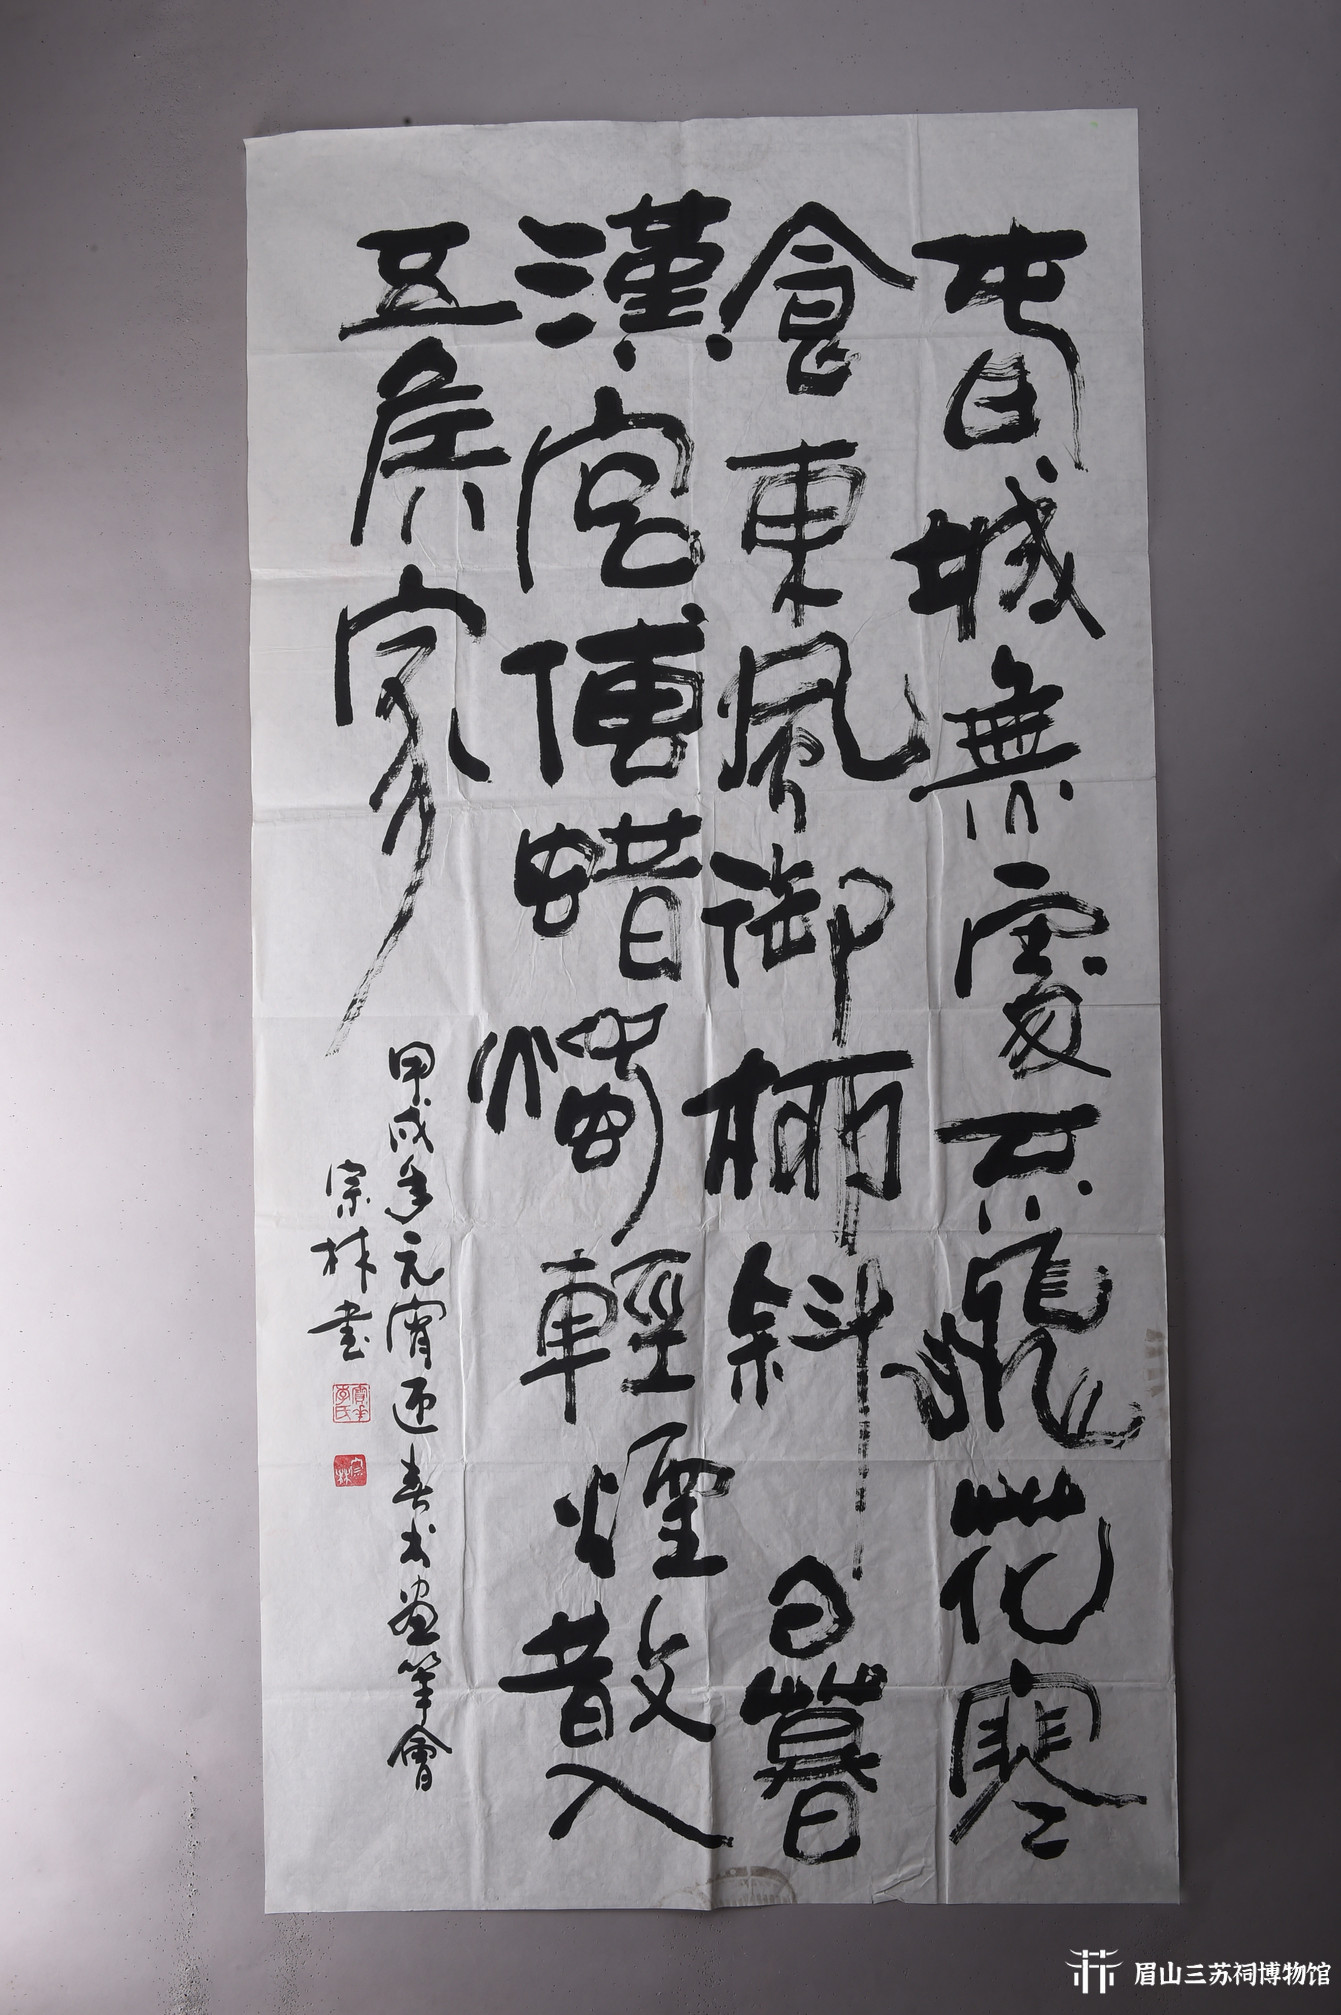 春城無處不飛花寒
食東風御柳斜日暮
漢宮傳蜡燭輕煙散入
五矦家
甲戌年元宵迎春书画笔會
宗林书
宗林
眉山三苏祠博物馆